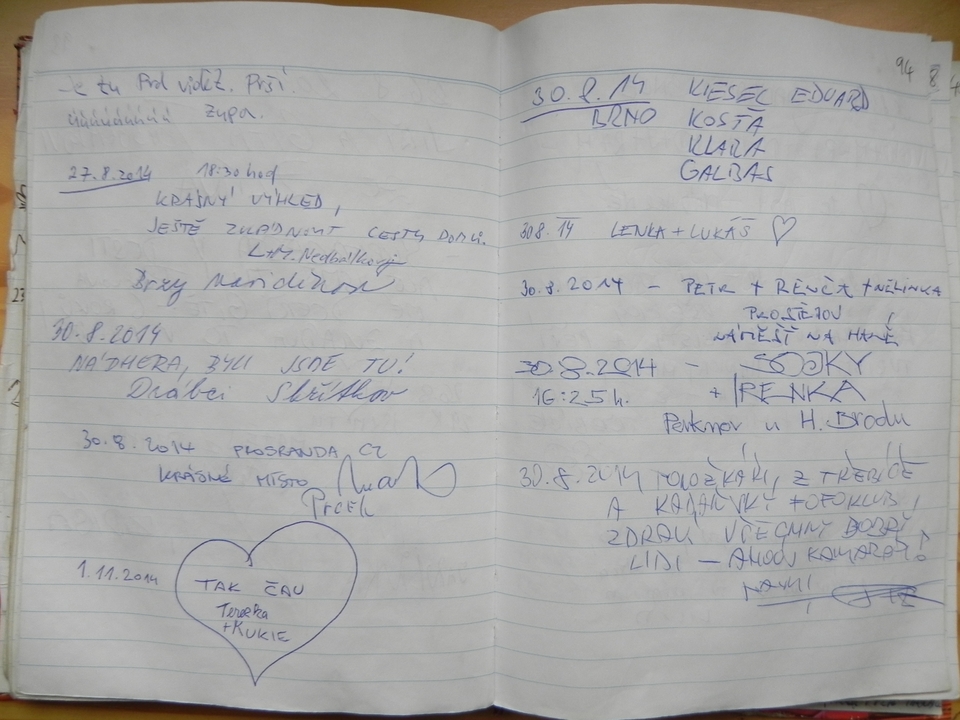 je tu vidět. Prší.
Župa.
27.8.2014 18:30 hod
KRÁSNÝ VÝHLED,
JEŠTĚ ZVLÁDNOUT CESTU DOMŮ.
L+M. Nedbálkovi
30.8.2014
NÁDHERA, BYLI JSME TU!
Drábci Skřítkov
30.8.2014 PROSRANDA CZ
KRÁSNÉ MÍSTO
1.11.2014
TAK ČAU
Terezka
+KUKIE
94
30.8.14 KIESEL EDUARD
BRNO KOSŤA
KLÁRA
GALBAS
30.8.14 LENKA + LUKÁŠ ♡
30.8.2014 – PETR + RENČA + NELINKA
PROSTĚJOV
NÁMĚŠŤ NA HANÉ
30.8.2014 – SOJKY
16:25h. + IRENKA
Perknov u H. Brodu
30.8.2014 Z TŘEBÍČE
A FOTOKLUB
ZDRAVÍ VŠECHNY DOBRÝ
LIDI – AHOJ KAMARÁDI